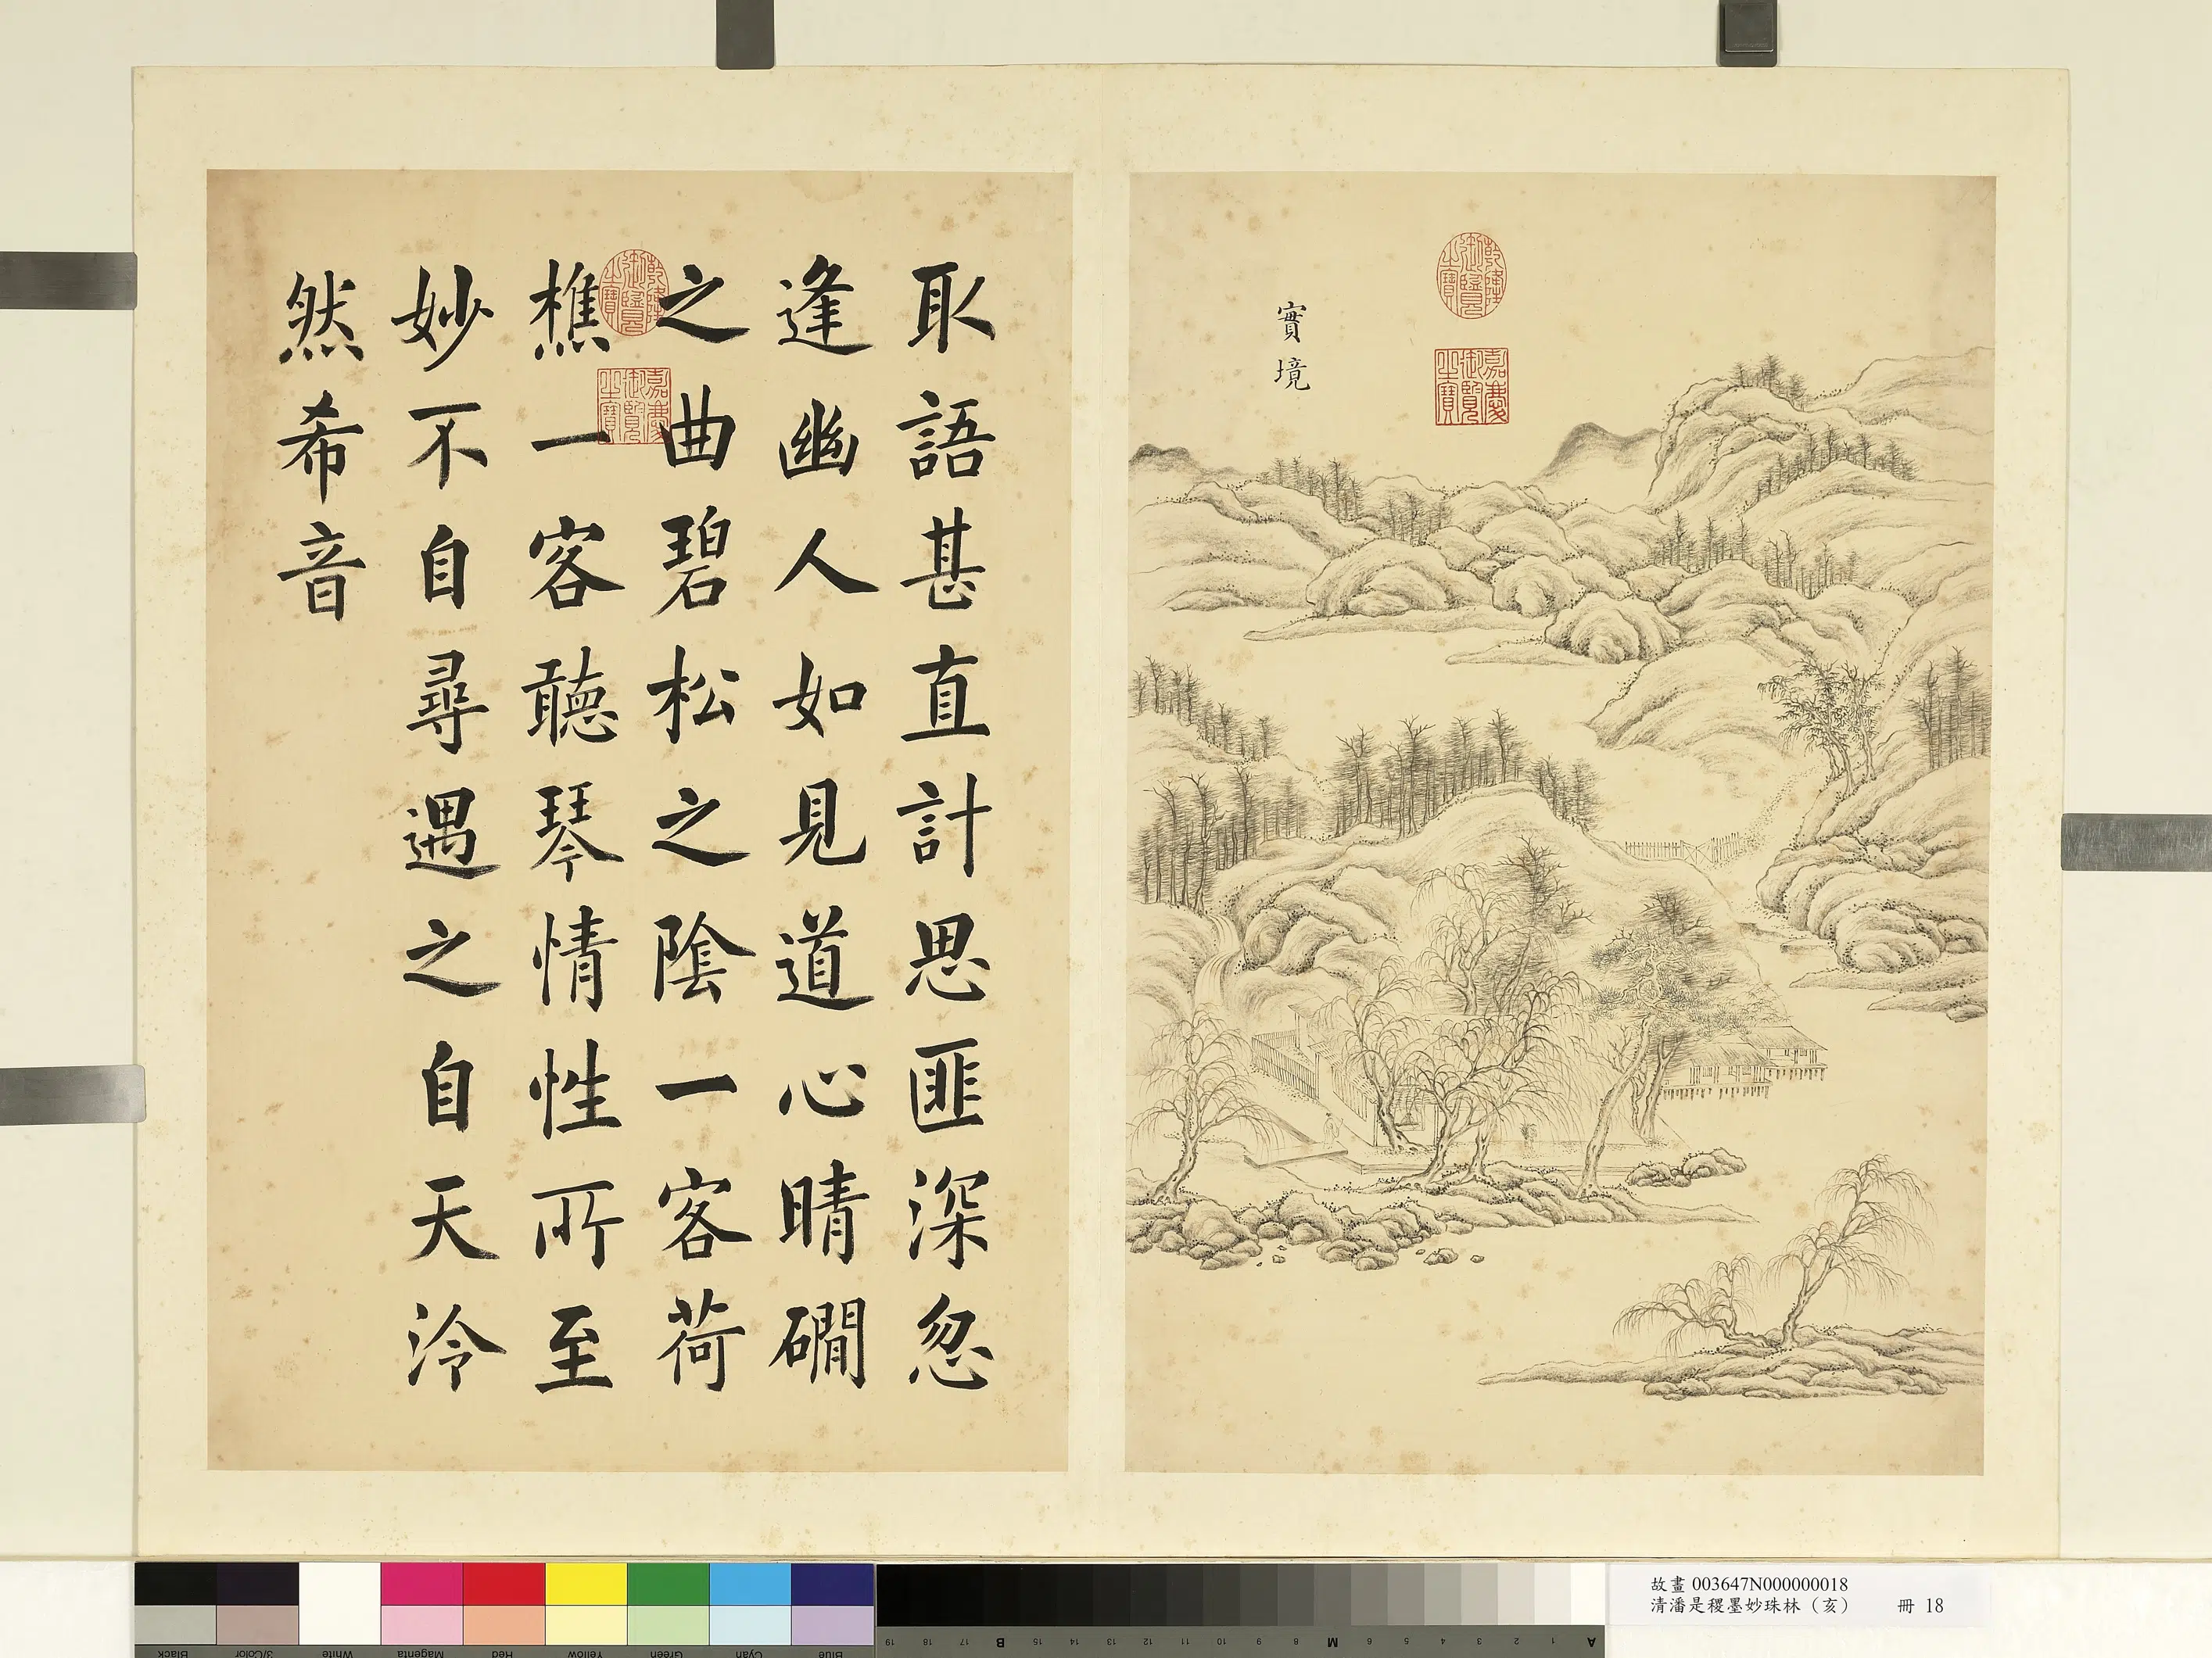 實境
乾隆御覽之寶
嘉慶御覽之寶
取語甚直計思匪深忽
逢幽人如見道心晴磵
之曲碧松之陰一客荷
樵一客聽琴情性所至
妙不自尋遇之自天泠
然希音
乾隆御覽之寶
嘉慶御覽之寶
故畫 003647N000000018
清潘是稷墨妙珠林（亥） 冊 18
Black 3/Color White Magenta Red Yellow Green Cyan Blue
19 18 17 B 15 14 13 12 11 10 9 8 M 6 5 4 3 2 1 A